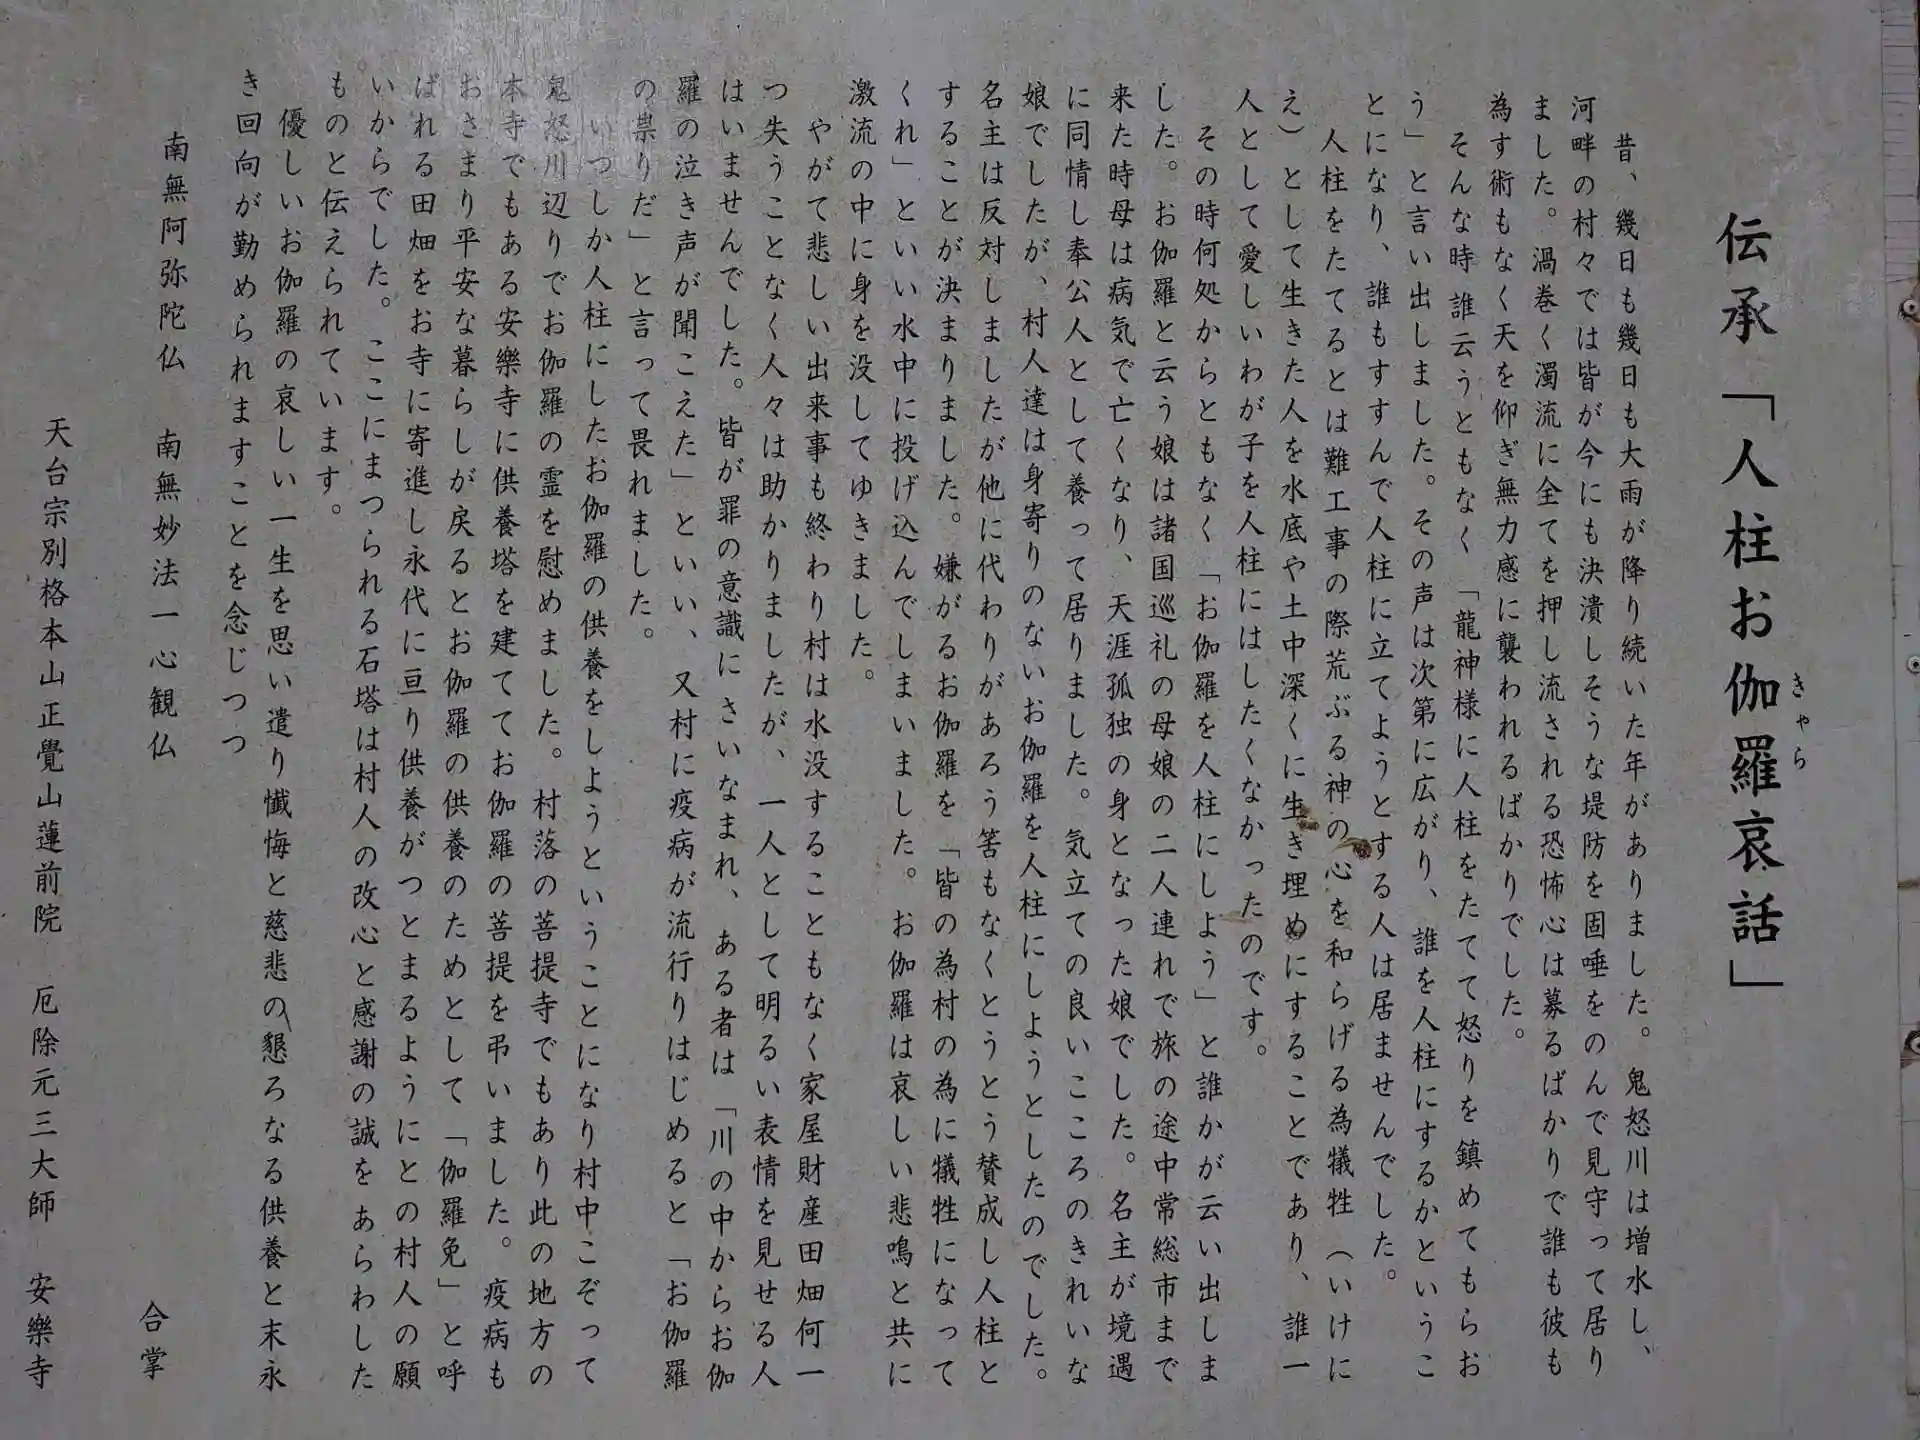 伝承「人柱お伽羅哀話」
きゃら
昔、幾日も幾日も大雨が降り続いた年がありました。鬼怒川は増水し、
河畔の村々では皆が今にも決潰しそうな堤防を固唾をのんで見守って居り
ました。渦巻く濁流に全てを押し流される恐怖心は募るばかりで誰も彼も
為す術もなく天を仰ぎ無力感に襲われるばかりでした。
そんな時誰云うともなく「龍神様に人柱をたてて怒りを鎮めてもらお
う」と言い出しました。その声は次第に広がり、誰を人柱にするかというこ
とになり、誰もすすんで人柱に立てようとする人は居ませんでした。
人柱をたてるとは難工事の際荒ぶる神の心を和らげる為犠牲（いけに
え）として生きた人を水底や土中深くに生き埋めにすることであり、誰一
人として愛しいわが子を人柱にはしたくなかったのです。
その時何処からともなく「お伽羅を人柱にしよう」と誰かが云い出しま
した。お伽羅と云う娘は諸国巡礼の母娘の二人連れで旅の途中常総市まで
来た時母は病気で亡くなり、天涯孤独の身となった娘でした。名主が境遇
に同情し奉公人として養って居りました。気立ての良いこころのきれいな
娘でしたが、村人達は身寄りのないお伽羅を人柱にしようとしたのでした。
名主は反対しましたが他に代わりがあろう筈もなくとうとう賛成し人柱と
することが決まりました。嫌がるお伽羅を「皆の為村の為に犠牲になって
くれ」といい水中に投げ込んでしまいました。お伽羅は哀しい悲鳴と共に
激流の中に身を没してゆきました。
やがて悲しい出来事も終わり村は水没することもなく家屋財産田畑何一
つ失うことなく人々は助かりましたが、一人として明るい表情を見せる人
はいませんでした。皆が罪の意識にさいなまれ、ある者は「川の中からお伽
羅の泣き声が聞こえた」といい、又村に疫病が流行りはじめると「お伽羅
の祟りだ」と言って畏れました。
いつしか人柱にしたお伽羅の供養をしようということになり村中こぞって
鬼怒川辺りでお伽羅の霊を慰めました。村落の菩提寺でもあり此の地方の
本寺でもある安樂寺に供養塔を建ててお伽羅の菩提を弔いました。疫病も
おさまり平安な暮らしが戻るとお伽羅の供養のためとして「伽羅免」と呼
ばれる田畑をお寺に寄進し永代に亘り供養がつとまるようにとの村人の願
いからでした。ここにまつられる石塔は村人の改心と感謝の誠をあらわした
ものと伝えられています。
優しいお伽羅の哀しい一生を思い遣り懺悔と慈悲の懇ろなる供養と末永
き回向が勤められますことを念じつつ
南無阿弥陀仏　南無妙法一心観仏
合掌
天台宗別格本山正覺山蓮前院　厄除元三大師　安樂寺